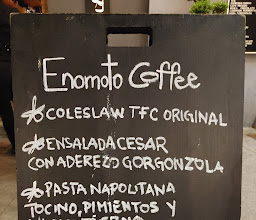 Enomoto Coffee
COLESLAW TFC ORIGINAL
ENSALADA CESAR
CON ADEREZO GORGONZOLA
PASTA NAPOLITANA
TOCINO, PIMIENTOS Y